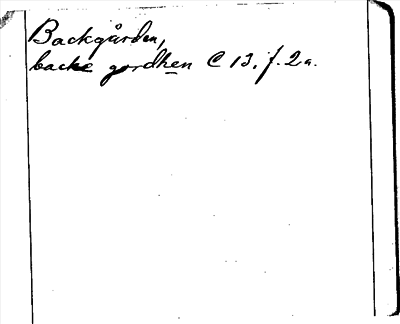 Backgården,
backe gordhen C 13, f. 2 a.